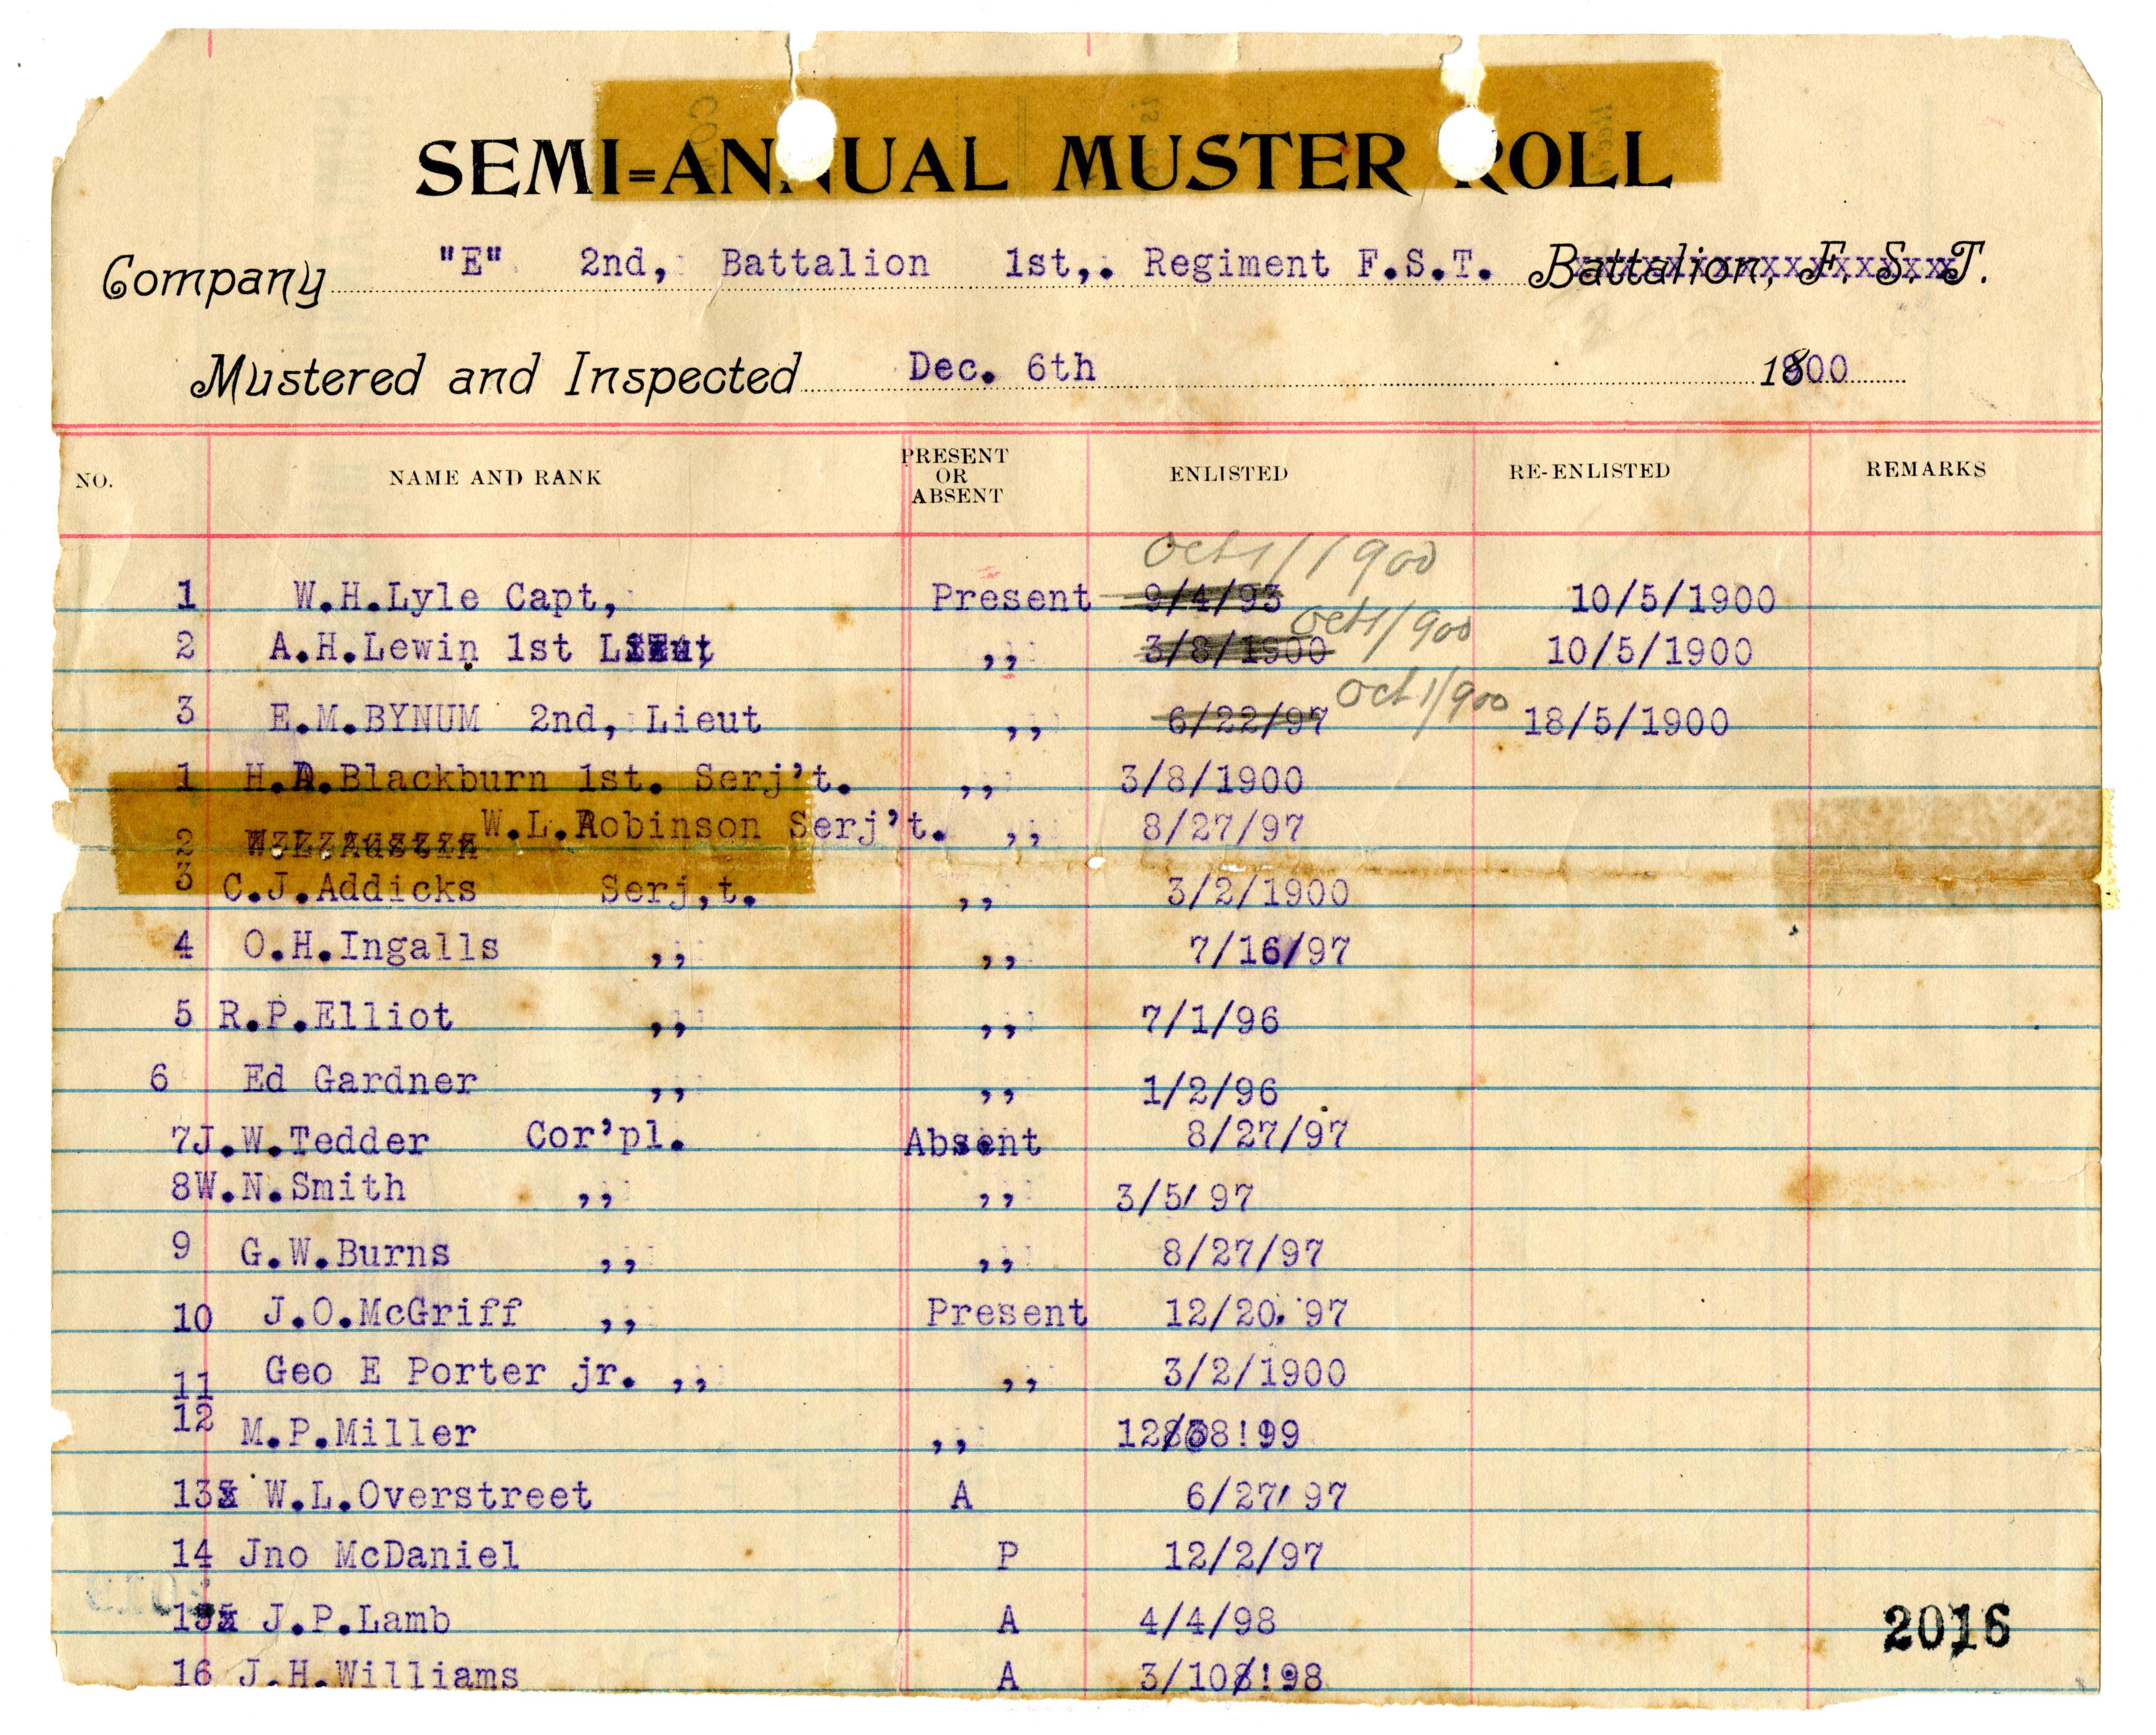 SEMI=ANNUAL MUSTER ROLL
Company "E" 2nd, Battalion 1st,. Regiment F.S.T. Battalion, F. S. T.
Mustered and Inspected Dec. 6th 1900
NO. NAME AND RANK PRESENT OR ABSENT ENLISTED RE-ENLISTED REMARKS
Oct 1/1900
1 W.H.Lyle Capt, Present 9/4/93 10/5/1900
Oct 1/900
2 A.H.Lewin 1st Lieut ,, 3/8/1900 10/5/1900
Oct 1/900
3 E.M.BYNUM 2nd, Lieut ,, 6/22/97 18/5/1900
1 H.A.Blackburn 1st. Serj't. ,, 3/8/1900
2 W.L.Austin W.L.Robinson Serj't. ,, 8/27/97
3 C.J.Addicks Serj,t. ,, 3/2/1900
4 O.H.Ingalls ,, ,, 7/16/97
5 R.P.Elliot ,, ,, 7/1/96
6 Ed Gardner ,, ,, 1/2/96
7 J.W.Tedder Cor'pl. Absent 8/27/97
8 W.N.Smith ,, ,, 3/5/97
9 G.W.Burns ,, ,, 8/27/97
10 J.O.McGriff ,, Present 12/20. '97
11 Geo E Porter jr. ,, ,, 3/2/1900
12 M.P.Miller ,,
13 W.L.Overstreet A 6/27/97
14 Jno McDaniel P 12/2/97
15 J.P.Lamb A 4/4/98
16 J.H.Williams A 3/10!98
2016